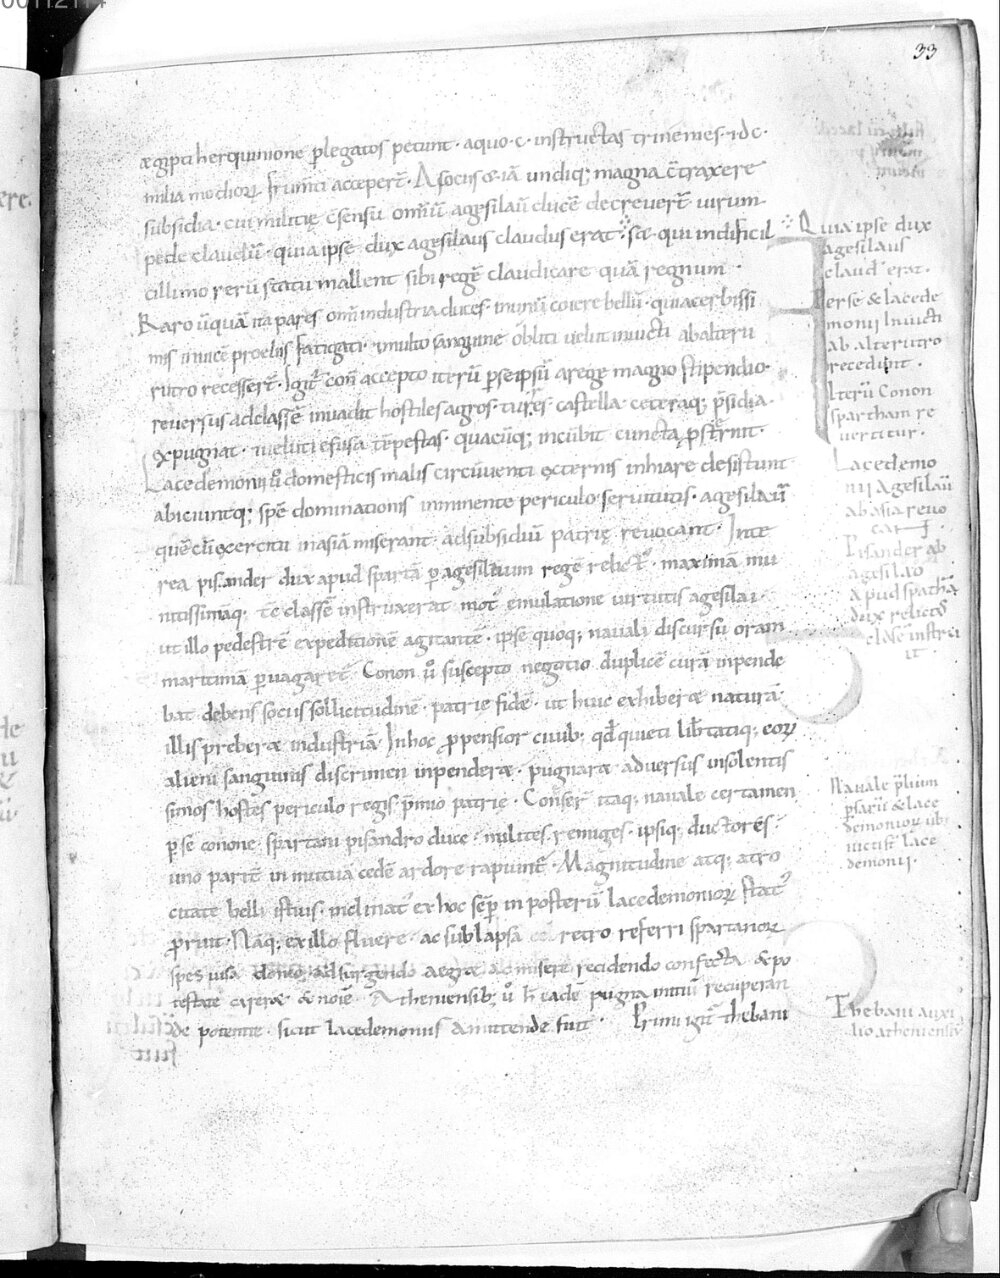 33
ægipti herquinione p̄legatos petunt · aquo · c · instructas trinemes · & dc ·
milia modiorū frumti acceper̄t · A sociis & iā undiq; magna c̄traxere
subsidia · cui militię c̄sensu om̄iū agesilaū ducē decreuer̄t uirum
pede claudū · quia ipse dux agesilaus claudus erat · sæ qui indificil
cillimo rerū statu mallent sibi regē claudicare quā regnum ·
Raro ūquā ita pares om̄i industria duces inunū coiere bellū · quiacerbissi
mis inuicē proeliis fatigati · multo sanguine obliti uelut inuicti abalteru
rutro recesser̄t · Igit̄ con̄ accepto iterū p̄seipsū arege magno stipendio ·
reuersus adclassē inuadit hostiles agros · turres castella ceteraq; p̄sidia ·
expugnat · ueluti effusa tēpestas · quacūq; incūbit cuncta p̄st̄nit ·
Lacedemonii ū domesticis malis circūuenti externis inhiare desistunt
abiciuntq; spē dominationis imminente periculo seruitutis · agesilaū
quē cū exercitu inasiā miserant · adsubsidiū patrię reuocant · Inte
rea pisander dux apud spartā p̄ agesilaum regē relict᷒ · maximā mu
nitissimāq; tc̄ classē instruxerat mot᷒ emulatione uirtutis agesilai ·
ut illo pedestrē expeditionē agitante · ipse quoq; nauali discursu oram
maritimā p̄uagaret̄ · Conon ū suscepto negotio duplicē curā inpende
bat debens sociis sollicitudinē · patrie fidē · ut huic exhiberæ naturā ·
illis preberæ industriā · Inhoc p̄pensior ciuib; qd̄ quieti lib̄tatiq; eoꝝ
alieni sanguinis discrimen inpenderæ · pugnaræ aduersus insolentis
simos hostes periculo regis p̄mio patrie · Conser̄ itaq; nauale certamen
p̄se conone spartani pisandro duce · milites remiges · ipsiq; ductores ·
uno partē in mutuā cedē ardore rapiunt̄ · Magnitudine atq; atro
citate belli istius · inclinat᷒ ex hoc sēp in posterū lacedemonioꝝ stat᷒
p̄ruit · Nāq; ex illo fluere · ac sublapsa retro referri spartanoꝝ
spes uisa · donec adsurgendo aegræ ac misere recidendo confecta & po
testate careræ & noīe · Atheniensib; ū h̄ eadē pugna initiū recuperan
dæ potentię · sicut lacedemoniis amittende fuit · Primi igit̄ thebani
Quia ipse dux
agesilaus
claud᷒ erat ·
Perse & lacede
monii inuicti
ab alterutro
recedunt ·
Iterū Conon
spartham re
uertitur ·
Lacedemo
nii Agesilaū
abasia reuo
cant ·
Pisander ab
agesilao
apud spathā
dux relict᷒
classē instru
it ·
Nauale p̄lium
psarū & lace
demonioꝝ ubi
uicti st̄ lace
demonii ·
Thebani auxi
lio atheniensiū